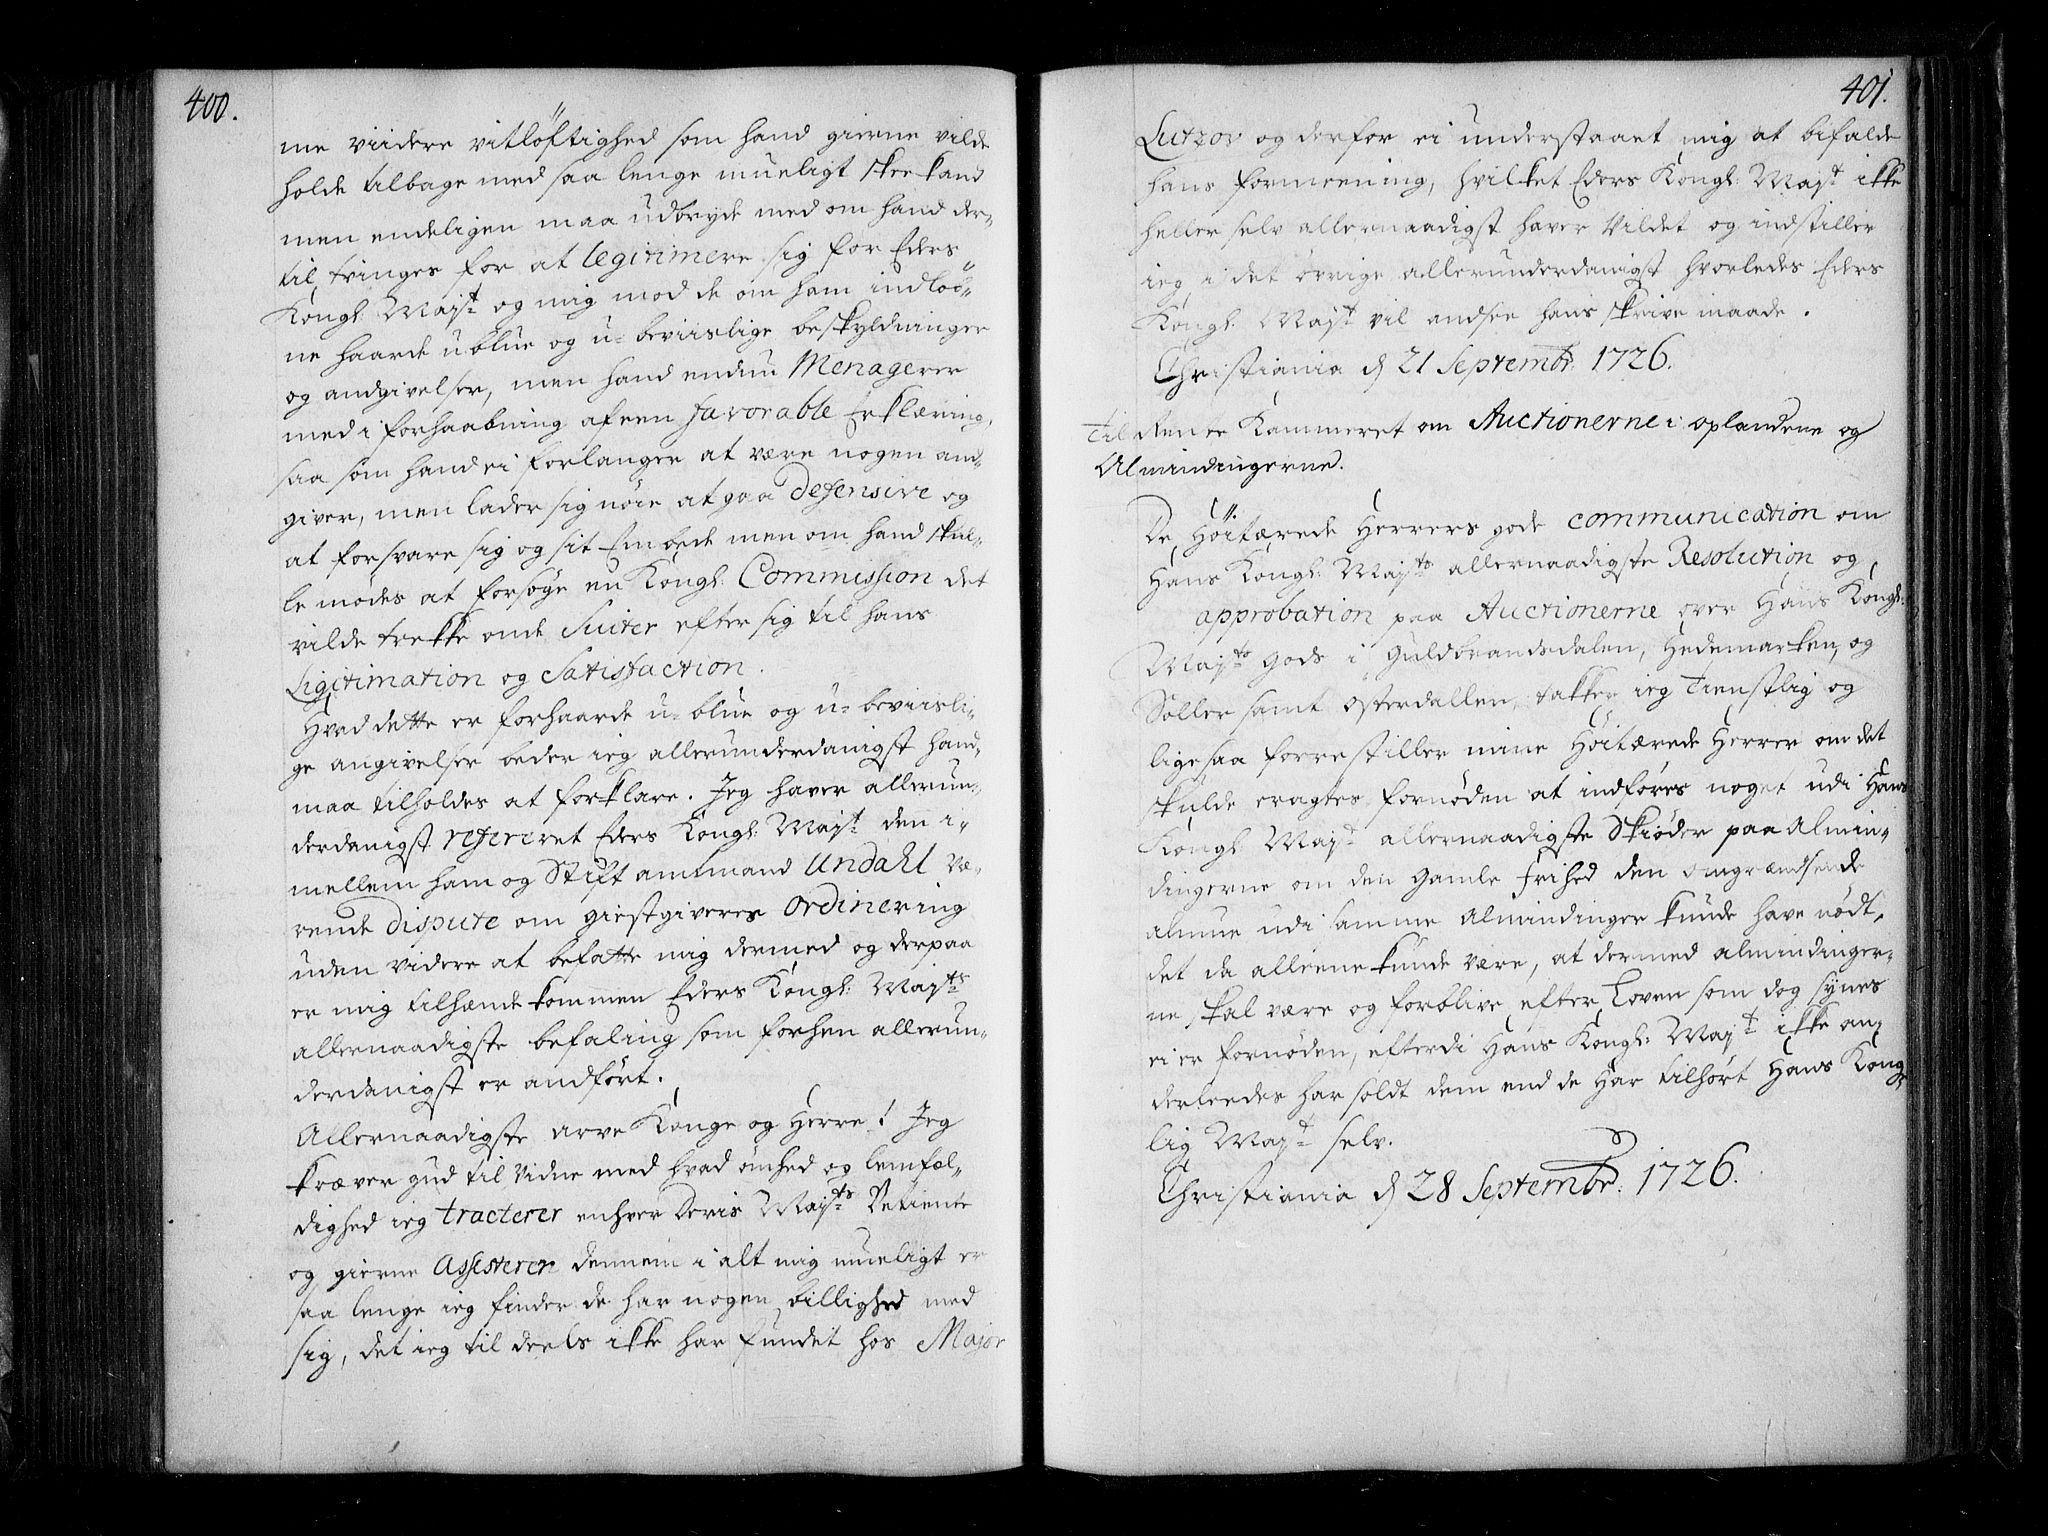 400.
me viidere vitlöftighed som hand gierne vilde
holde tilbage med saa lenge mueligt skee kand
men endeligen maa udbryde med om hand der-
til tvinges for at legitimere sig for Eders
Kongl: Mayst og mig mod de om ham indloö-
ne haarde u blue og u-beviislige beskyldninger
og andgivelser, men hand endnu Menagerer
med i forhaabning af een favorable Erklæring,
saa som hand ei forlanger at være nogen and-
giver, men lader sig nöie at gaa Defensive og
at forsvare sig og sit Embede men om hand skul-
le modes at forsøge en Kongl: Commission det
vilde trekke onde Suiter efter sig til hans
Ligitimation og Satisfaction.
Hvad dette er for haarde u-blue og u-beviisli-
ge angivelser beder ieg allerunderdanigst hand
maa tilholdes at forklare. Jeg haver allerun-
derdanigst refereret Eders Kongl: Mayst den i-
mellem ham og Stift amtmand Undahl væ-
rende dispute om giestgiveres ordinering
uden videre at befatte mig dermed og derpaa
er mig tilhænde kommen Eders Kongl: Maysts
allernaadigste befaling som forhen allerun-
derdanigst er andfört.
Allernaadigste arve Konge og Herre! Jeg
kræver gud til Vidne med hvad ömhed og lemfæl-
dighed ieg tracterer enhver Deris Maysts Betiente
og gierne assisterer dennem i alt mig mueligt er
saa lenge ieg finder de har nogen billighed med
sig, det ieg til deels ikke har fundet hos Major
401.
Lutzov og derfor ei understaaet mig at bifalde
hans formeening, hvilket Eders Kongl: Mayst ikke
heller selv allernaadigst haver Vildet og indstiller
ieg i det övrige allerunderdanigst hvorledes Eders
Kongl: Mayst vil andsee hans skrive maade.
Christiania d 21 Septembr: 1726.
Til Rente Kammeret om Auctionerne i oplandene og
Almindingerne.
De Höitærede Herrers gode communication om
Hans Kongl: Maysts allernaadigste Resolution og
approbation paa Auctionerne over Hans Kongl:
Maysts Gods i Guldbrandsdalen, Hedemarken, og
Soller samt Österdallen, takker ieg Tienstlig og
ligesaa forrestiller mine Höitærede Herrer om det
skulde eragtes fornöden at indföres noget udi Hans
Kongl: Mayst allernaadigste Skiöder paa Almin-
dingerne om den gamle frihed den omgrændsende
almue udi samme Almindinger kunde have nödt,
det da alleene kunde være, at dermed almindinger-
ne skal være og forblive efter Loven som dog synes
ei er fornöden, efterdi Hans Kongl: Mayst ikke an-
derleedes har soldt dem end de har tilhört Hans Kong-
lig Mayst selv.
Christiania d 28 Septembr: 1726.